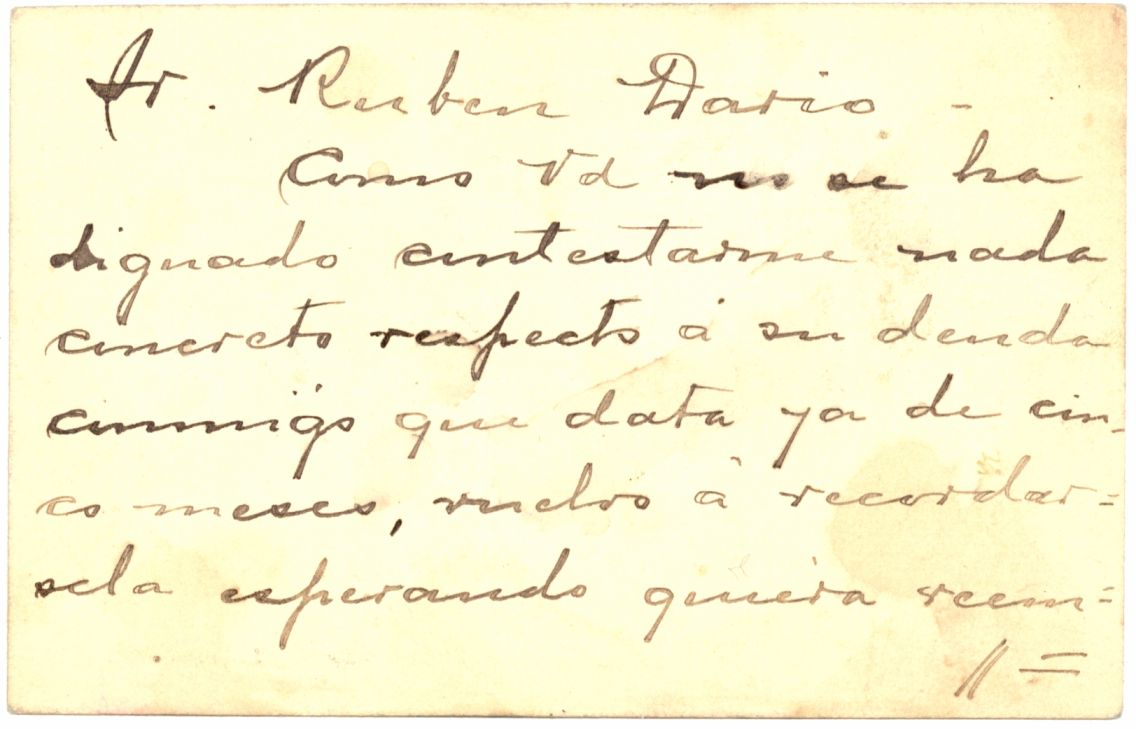 Sr. Ruben Dario -
Como Vd no se ha
dignado contestarme nada
concreto respecto á su deuda
conmigo que data ya de cin-
co meses, vuelvo á recordar=
sela esperando quiera reem=
//=